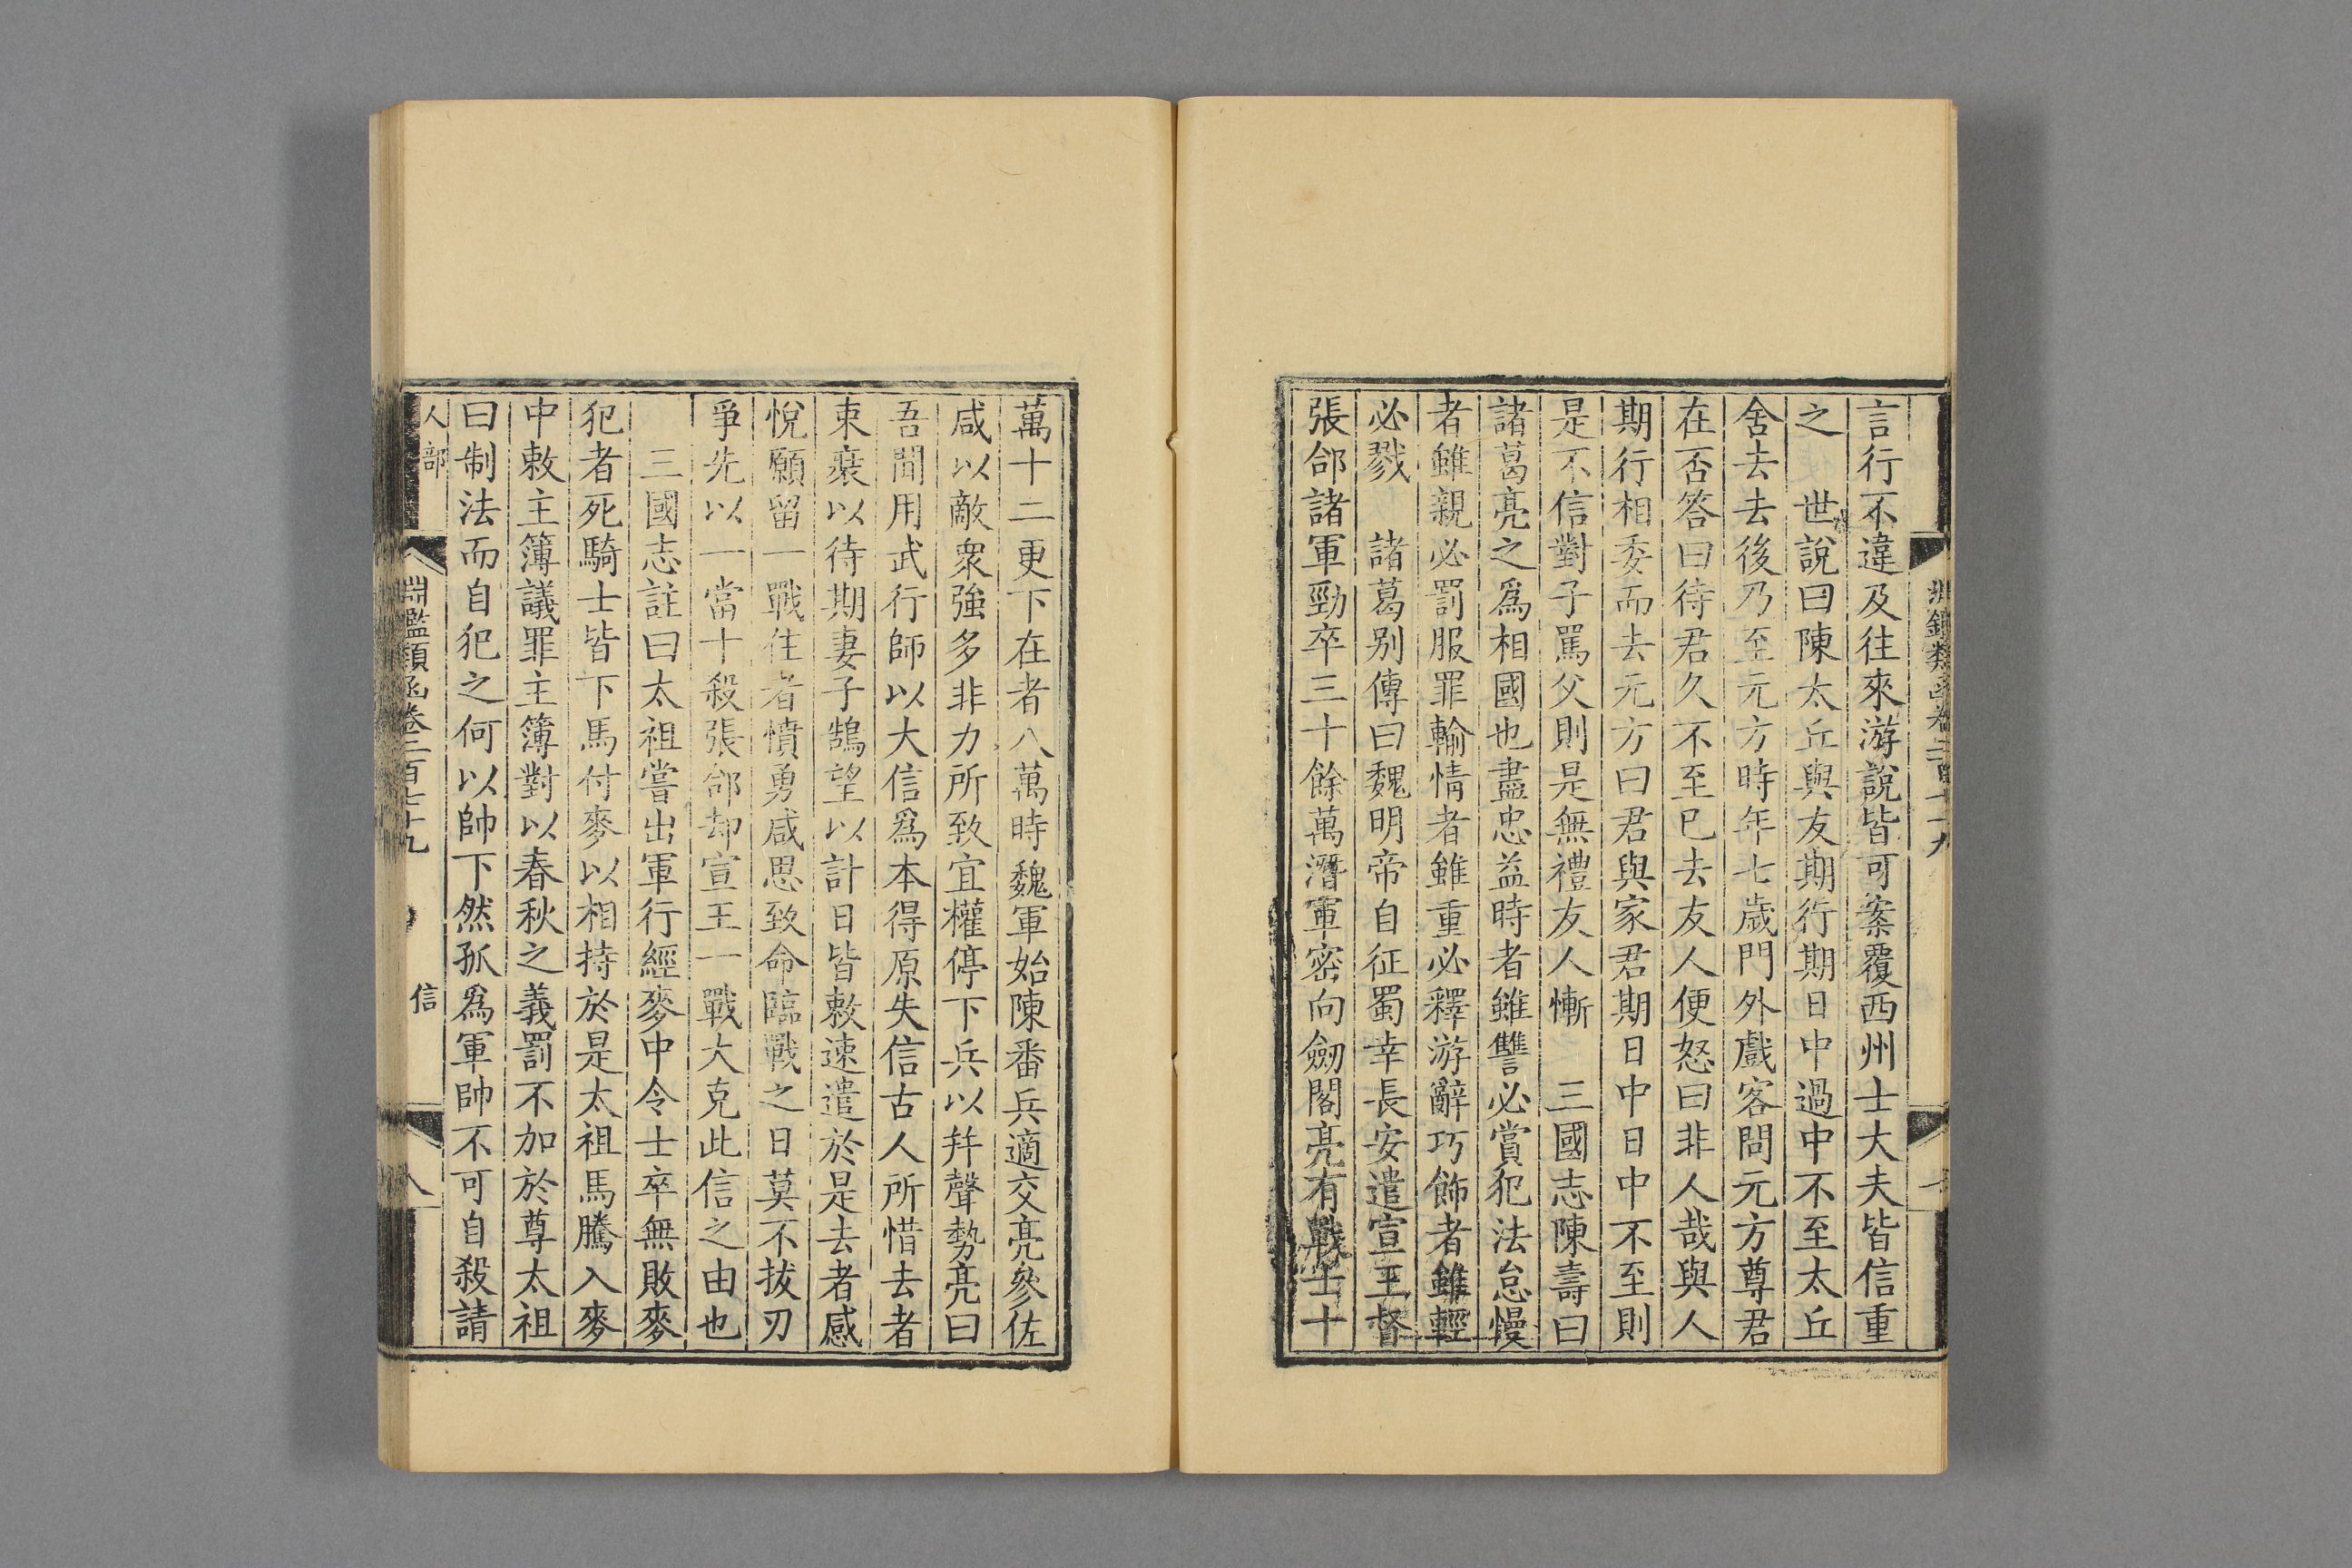 言行不違及往來游說皆可案覆西州士大夫皆信重
之　世說曰陳太丘與友期行期日中過中不至太丘
舍去去後乃至元方時年七歲門外戲客問元方尊君
在否答曰待君久不至已去友人便怒曰非人哉與人
期行相委而去元方曰君與家君期日中日中不至則
是不信對子罵父則是無禮友人慚　三國志陳壽曰
諸葛亮之爲相國也盡忠益時者雖讐必賞犯法怠慢
者雖親必罰服罪輸情者雖重必釋游辭巧飾者雖輕
必戮　諸葛别傳曰魏明帝自征蜀幸長安遣宣王督
張郃諸軍勁卒三十餘萬潛軍密向劒閣亮有戰士十
萬十二更下在者八萬時魏軍始陳番兵適交亮參佐
咸以敵衆強多非力所致宜權停下兵以幷聲勢亮曰
吾聞用武行師以大信爲本得原失信古人所惜去者
束裝以待期妻子鵠望以計日皆敕速遣於是去者感
悅願留一戰住者憤勇咸思致命臨戰之日莫不拔刃
爭先以一當十殺張郃却宣王一戰大克此信之由也
三國志註曰太祖嘗出軍行經麥中令士卒無敗麥
犯者死騎士皆下馬付麥以相持於是太祖馬騰入麥
中敕主簿議罪主簿對以春秋之義罰不加於尊太祖
曰制法而自犯之何以帥下然孤爲軍帥不可自殺請
人部　淵鑑類函卷二百七十九　信　八